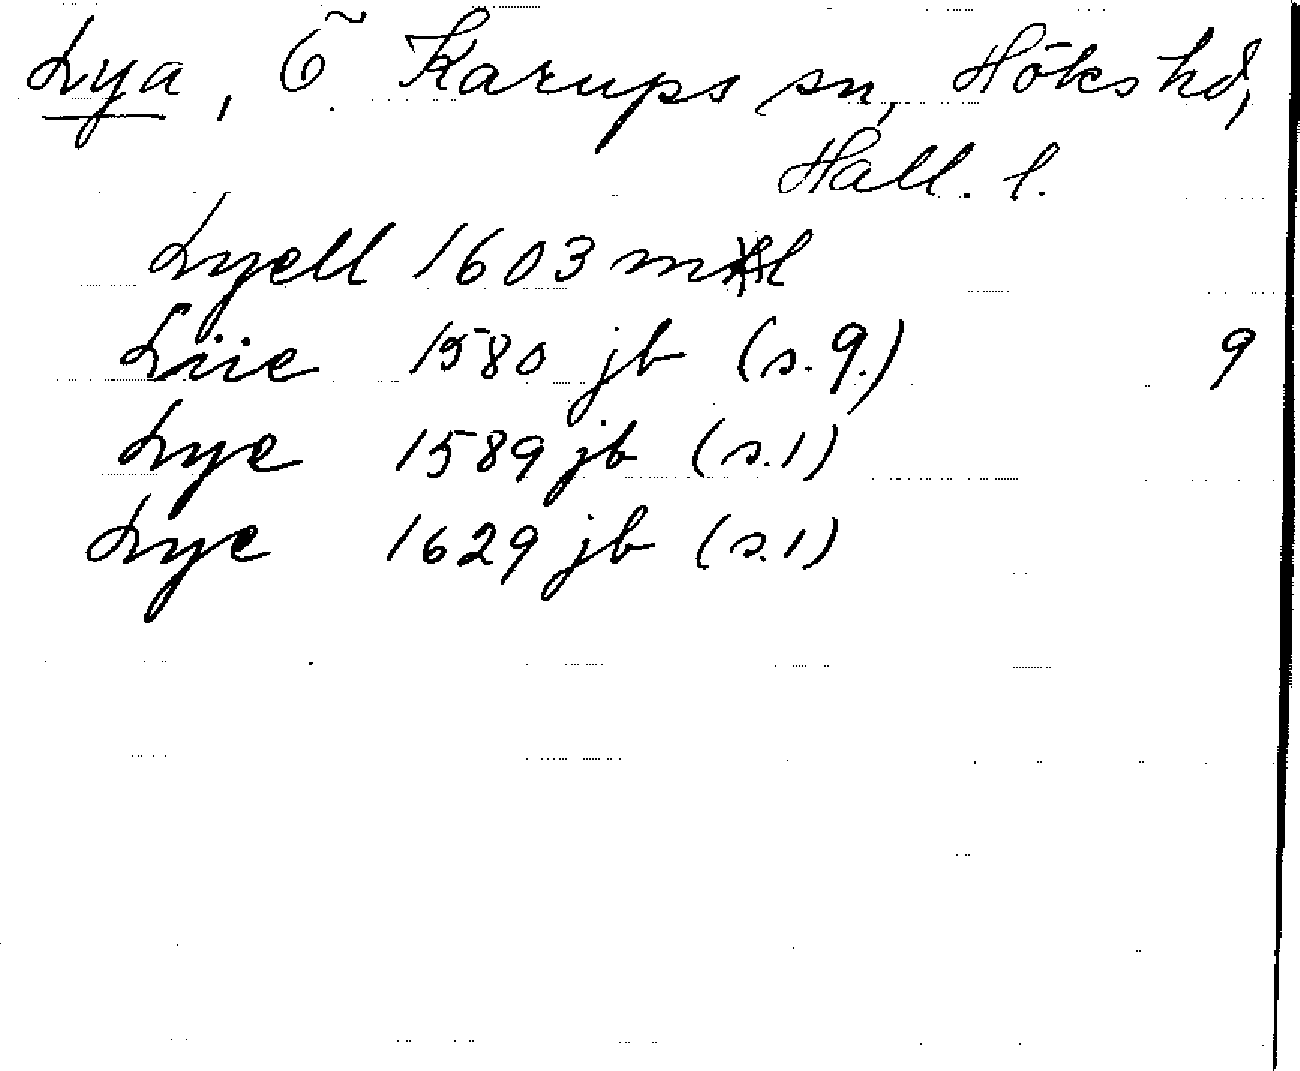 Lya, Ö. Karups sn, Höks hd,
Hall. l.
Lyell 1603 mtl
Liie 1580 jb (s. 9.) 9
Lye 1589 jb (s. 1)
Lye 1629 jb (s. 1)